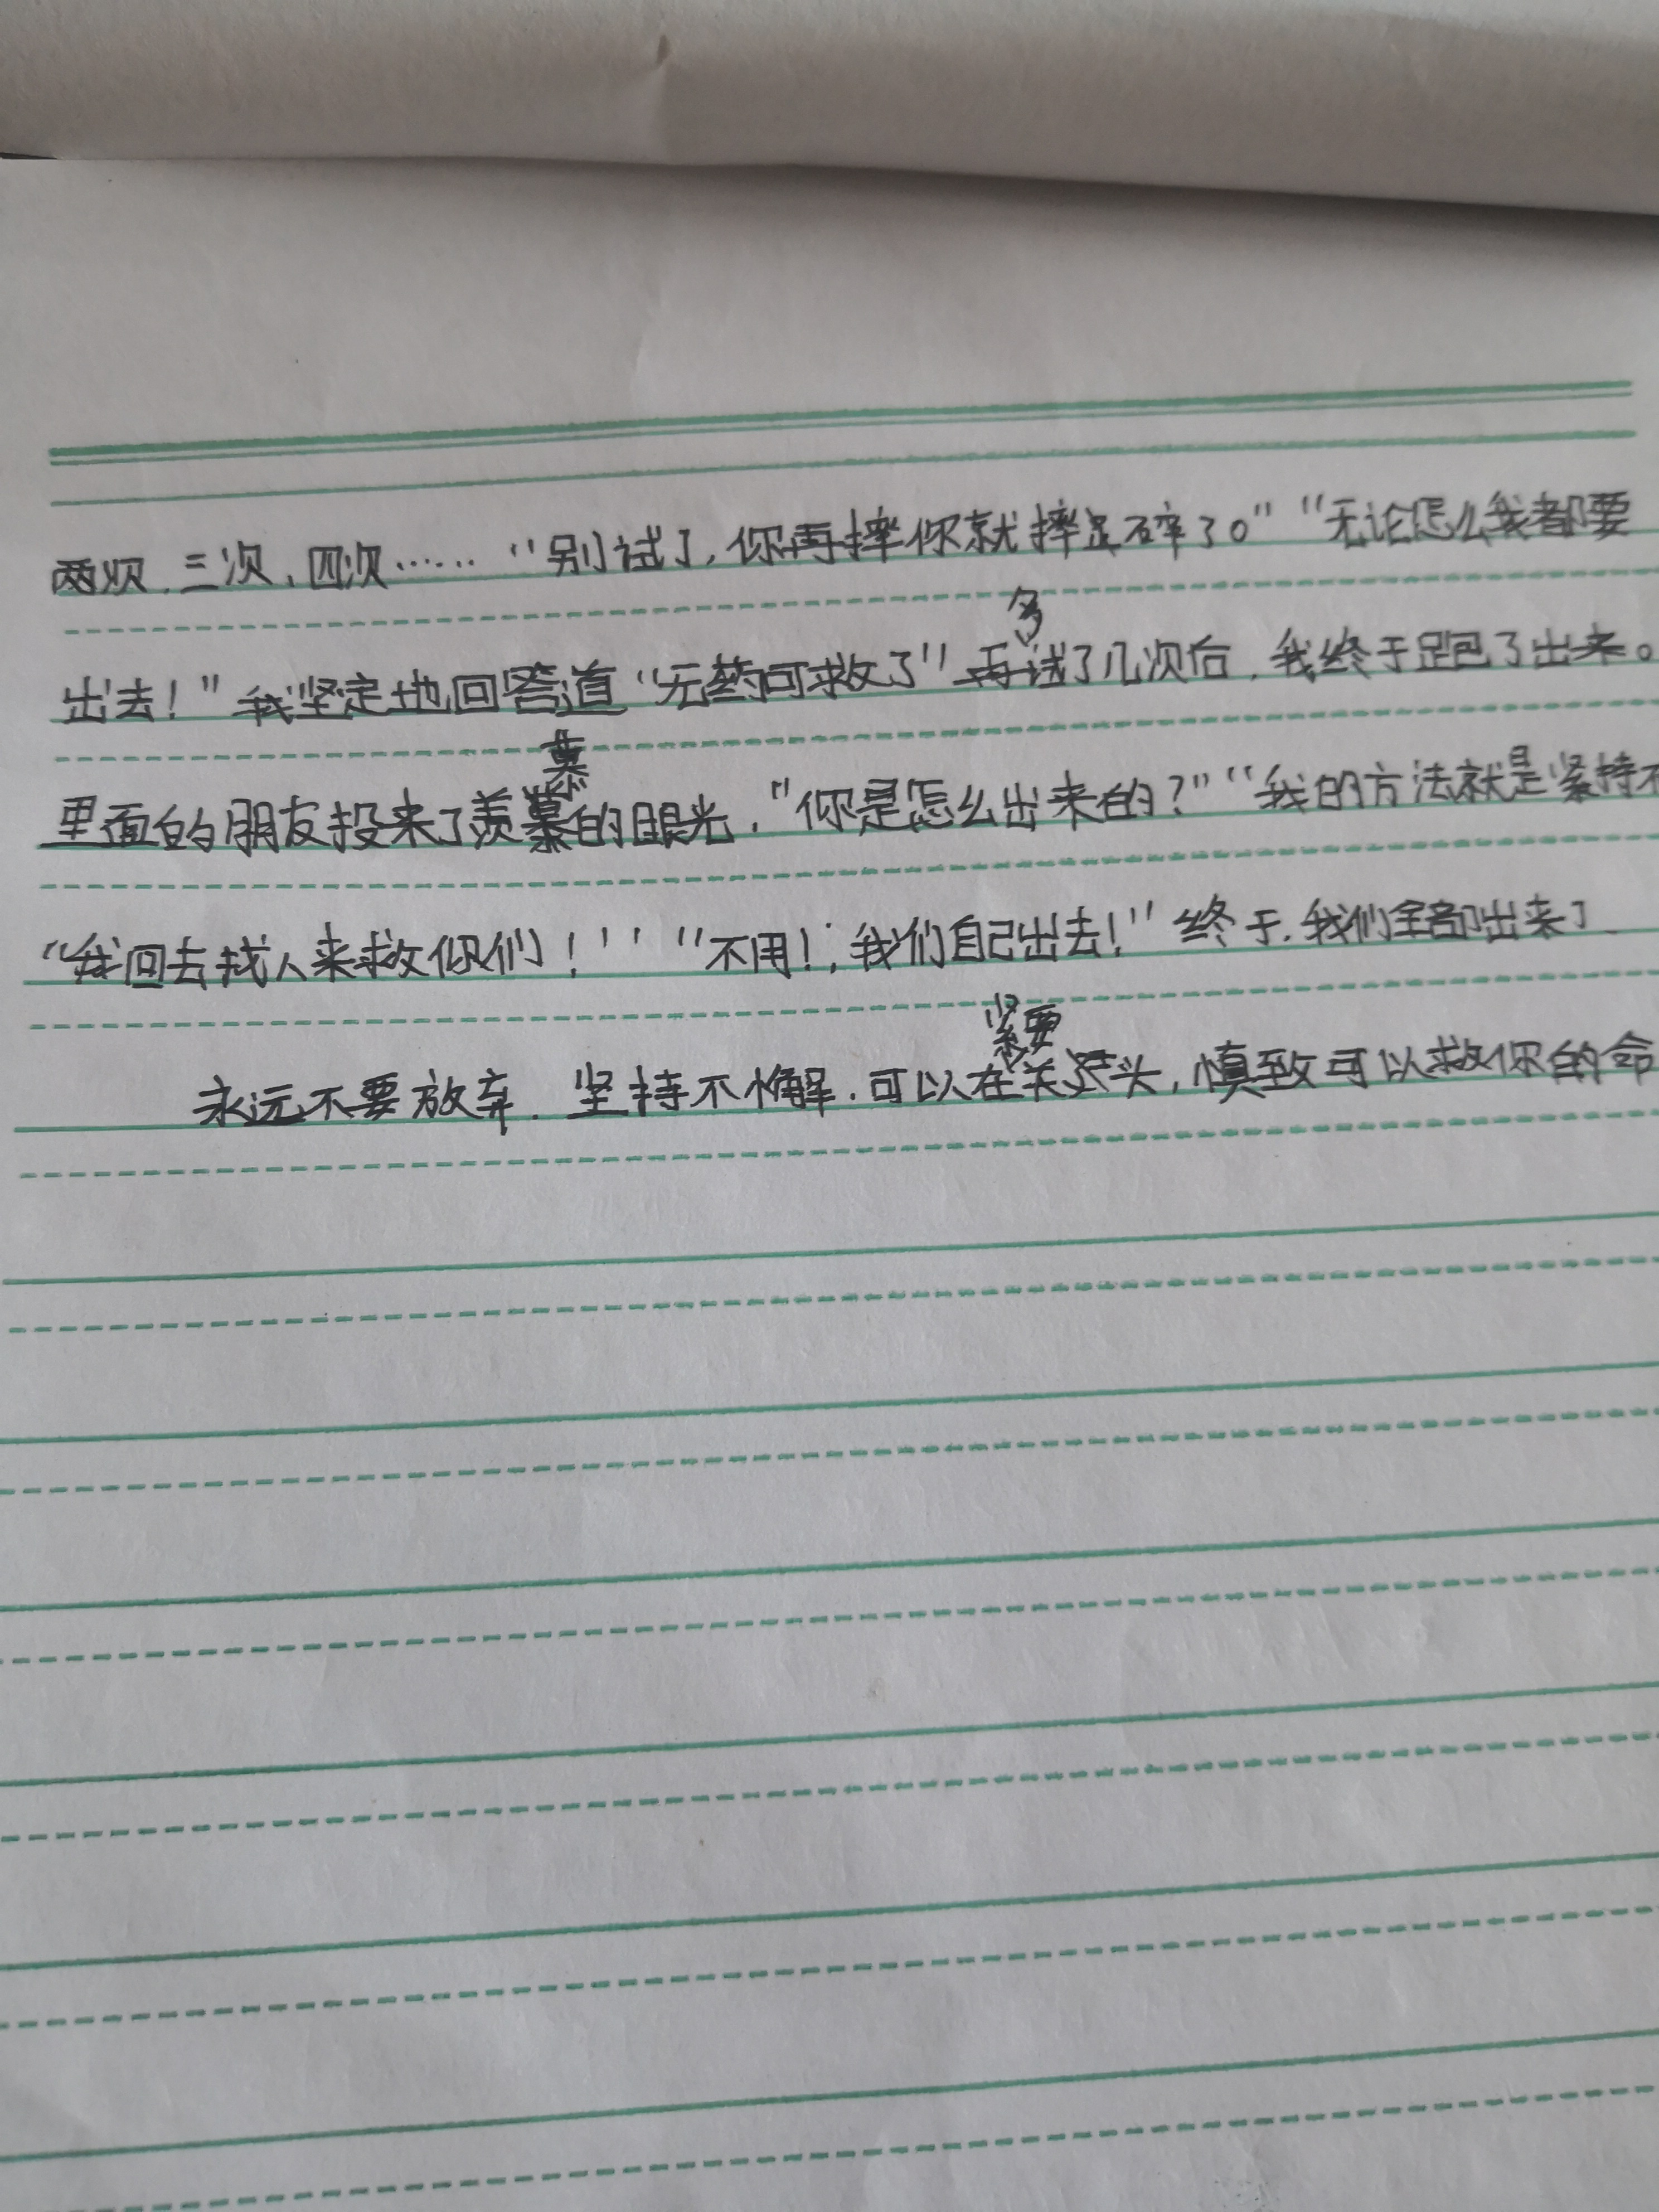 两次、三次、四次……“别试了，你再摔你就摔碎了。”“无论怎么我都要
出去！”我坚定地回答道“无药可救了”再多试了几次后，我终于跑了出来。
里面的朋友投来了羡慕的眼光，“你是怎么出来的？”“我的方法就是紧持不
“我回去找人来救你们！”“不用！，我们自己出去！”终于，我们全部出来了
永远不要放弃，坚持不懈，可以在紧要关头，慎致可以救你的命